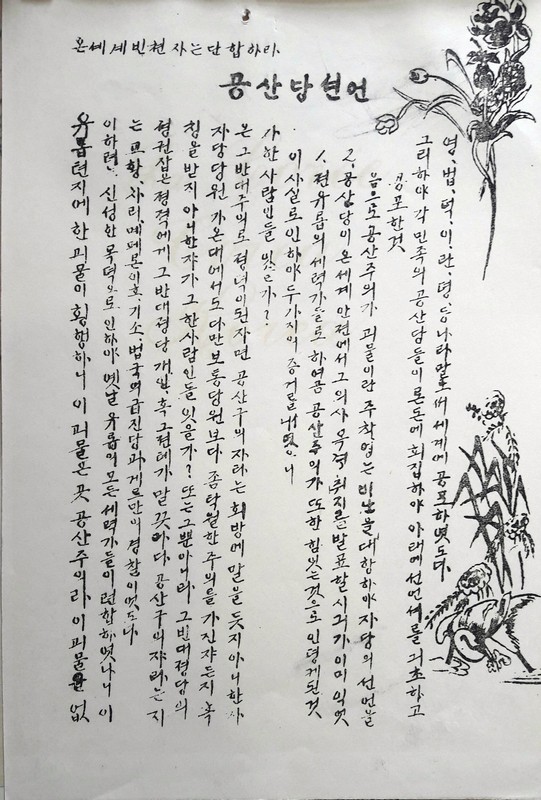 온세계빈천자는단합하라
공산당선언
유롭턴지에 한 괴물이 횡행하니 이 괴물은 곳 공산주의라 이 괴물을 없
이하려는 신성한 목덕으로 인하야 옛날 유롭의 모든 세력가들이 련합하엿나니 이
는 교황, 차리, 메테르니흐, 기소, 법국의급진당과 게르만의 경찰이엇도다
정권잡은 정객에게 그 반대정당 개인 혹 그 련톄가 말 곳마다 공산주의쟈라는 지
칭을 받지 아니한쟈가 그 한사람인들 잇을가? 또는 그뿐아니라 그 반대정당의
자당당원 가온대에서도 다만 보통당원보다 좀 탁월한 주의를 가진쟈든지 혹
온 그 반대주의로 이된자면 공산주의쟈라는 회방에 말을 듯지 아니한사
사한 사람인들 잇는가?
이 사실로 인하야 두가지의 증거를 내엿으니
1. 전유롭의 세력가들로 하여곰 공산주의가 또한 힘잇는것으로 인뎡케된것
2. 공산당이 온세계 안전에서 그 의사 목적 취지를 발표할 시긔가 이미 익엇
음으로 공산주의가 괴물이란 주착업는 비난을 대항하야 자당의 선언을
공포한것
그리하야 각 민족의 공산당들이 론돈에 회집하야 아래에 선언서를 긔초하고
영, 법, 덕, 이, 란, 뎡, 등나라말로써 세계에 공포하엿도다.